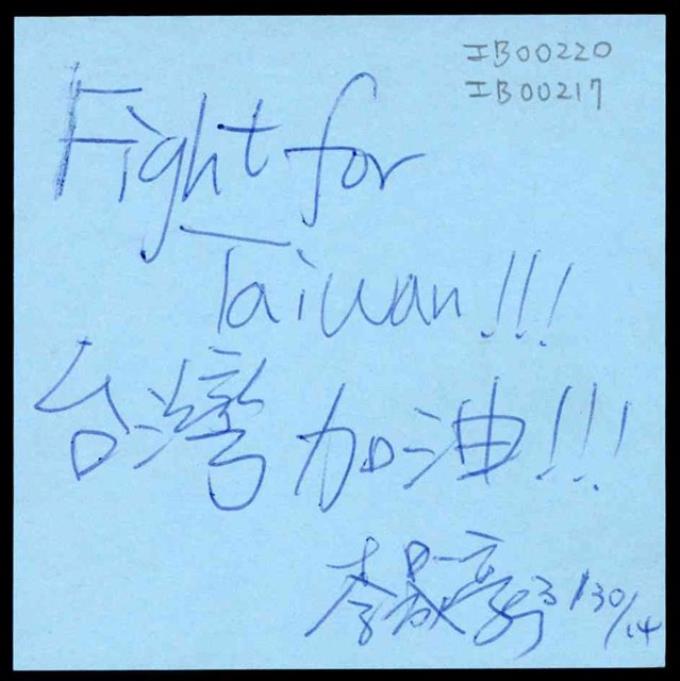 IB00220
IB00217
Fight for
Taiwan!!!
台灣加油!!!
李 3/30/14